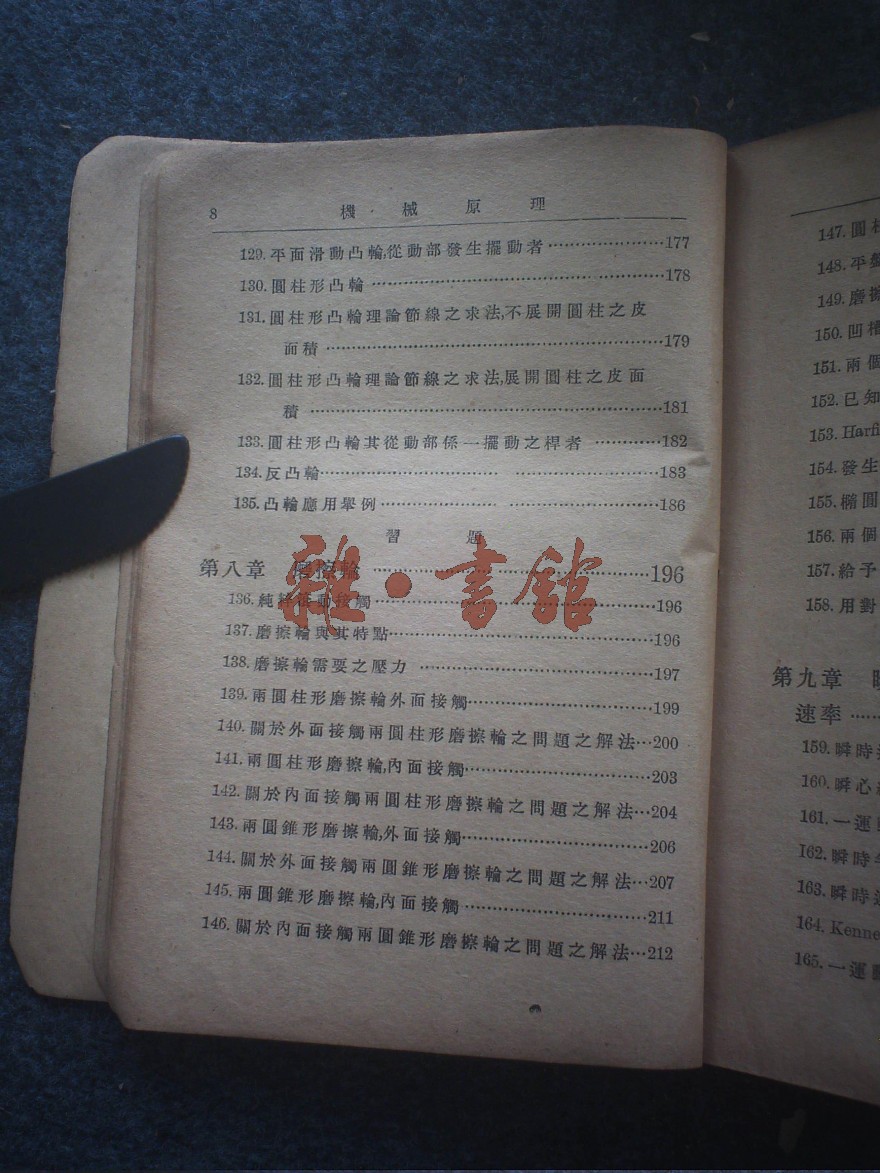 8 機械原理
129.平面滑動凸輪,從動部發生擺動者…………………177
130.圓柱形凸輪…………………178
131.圓柱形凸輪理論節線之求法,不展開圓柱之皮
面積…………………179
132.圓柱形凸輪理論節線之求法,展開圓柱之皮面
積…………………181
133.圓柱形凸輪其從動部係一擺動之桿者…………182
134.反凸輪…………………183
135.凸輪應用舉例…………………186
習題
第八章 磨擦輪…………………196
136.純 動接觸…………………196
137.磨擦輪與其特點…………………196
138.磨擦輪需要之壓力…………………197
139.兩圓柱形磨擦輪外面接觸…………………199
140.關於外面接觸兩圓柱形磨擦輪之問題之解法…200
141.兩圓柱形磨擦輪,內面接觸…………………203
142.關於內面接觸兩圓柱形磨擦輪之問題之解法…204
143.兩圓錐形磨擦輪,外面接觸…………………206
144.關於外面接觸兩圓錐形磨擦輪之問題之解法…207
145.兩圓錐形磨擦輪,內面接觸…………………211
146.關於內面接觸兩圓錐形磨擦輪之問題之解法…212
雜·書館
147.圓
148.平
149.磨
150.凹
151.兩個
152.已知
153.Harfi
154.發生
155.橢圓
156.兩個
157.給予
158.用對
第九章
速率……
159.瞬時
160.瞬心
161.一運
162.瞬時
163.瞬時
164.Kenne
165.一運